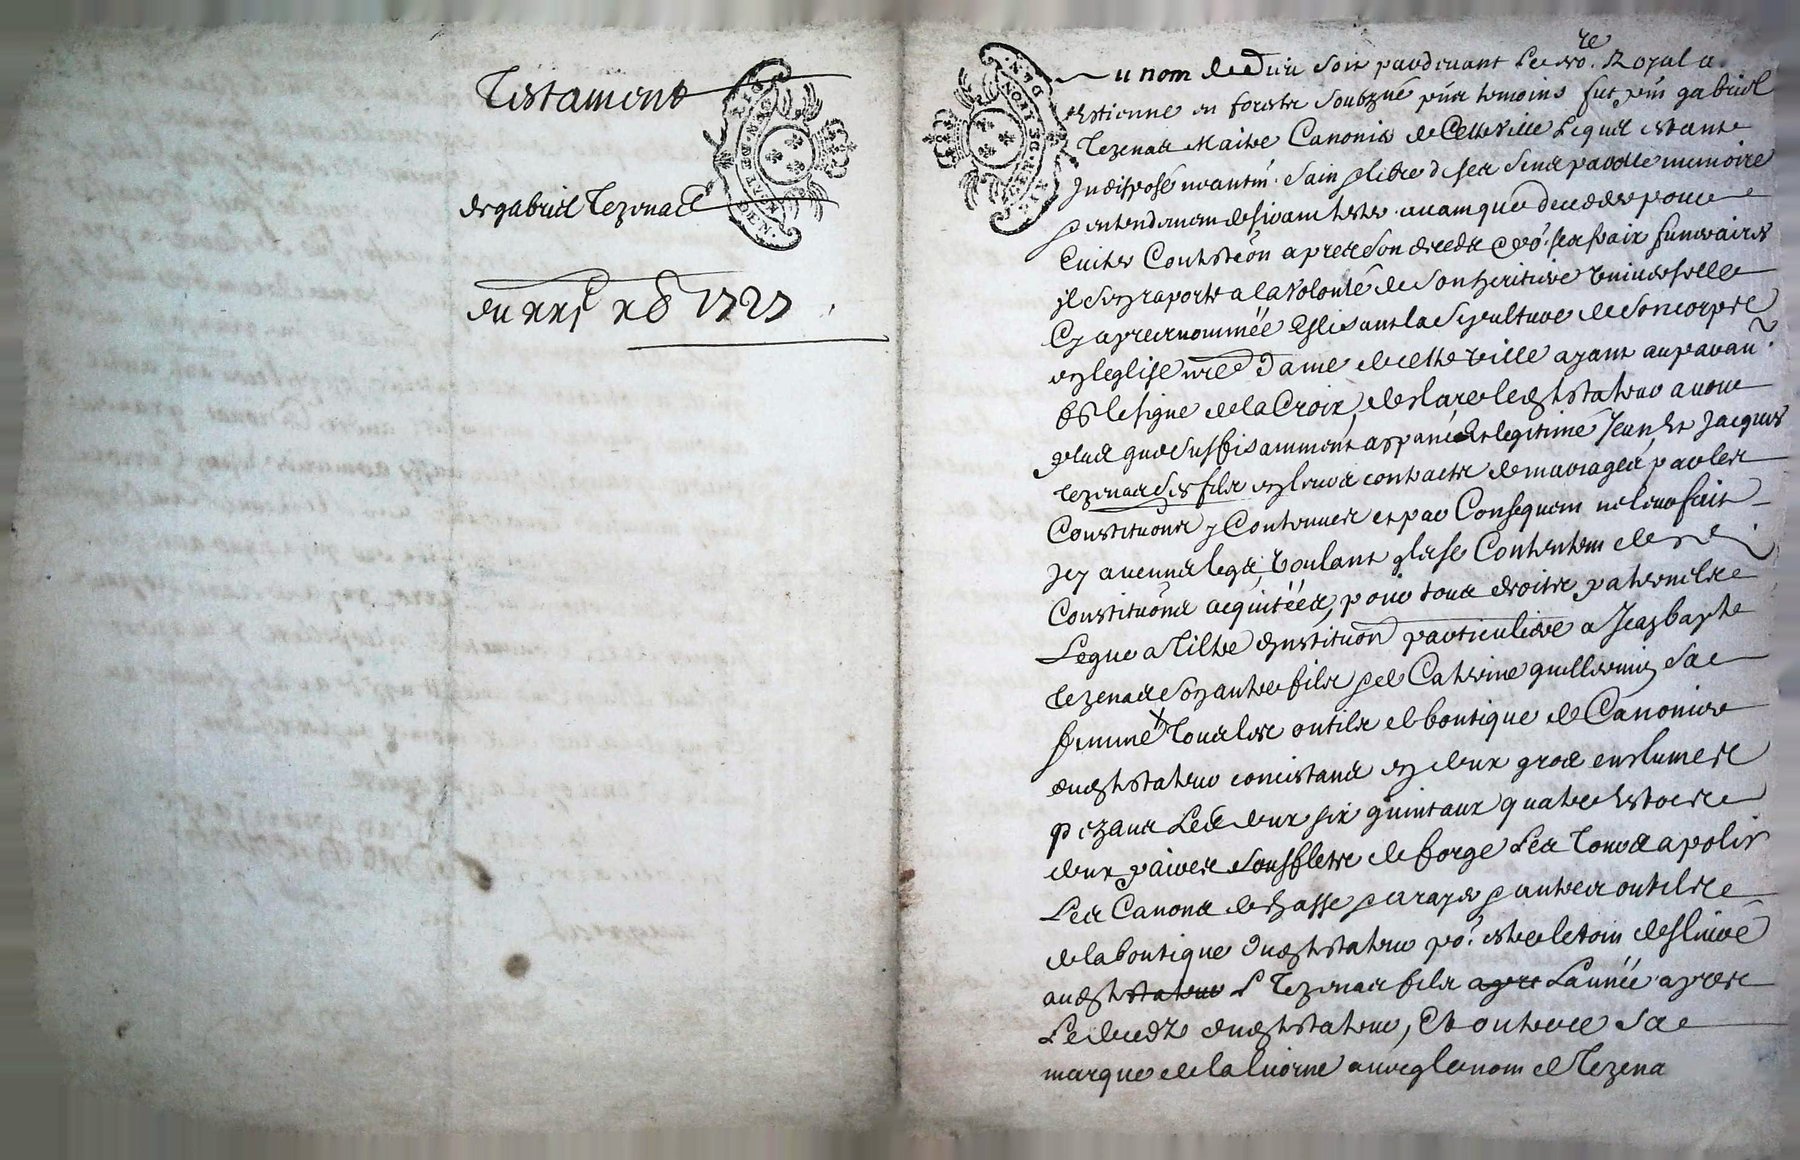 Testament
de gabriel Tezenas
du xxi xb 1727
Au nom de Dieu soit pardevant Le no.re Royal a
st estienne en forestz soubzné pnts temoins fut pnt gabriel
Tezenas Maitre Canonier de Cette Ville Lequel estant
Indisposé neantm. sain & libre de ses sens parolle memoire
& entendement desirant tester avant que deceder pour
Eviter Contestõn apres son decedz po.r ses frais funeraires
il s'en raporte a la Volonté de son heritiere universelle
Cy apres nommée Eslisant la Sepulture de son corps
en leglise nre Dame de cette Ville ayant auparavant
fait le signe de la Croix, declare ledt testateur avoir
plus que suffisamment appané & legitimé Jean et Jacques
Tezenas ses fils en leurs contracts de mariages, par les
Constitutions y Contenues et par Consequent ne leur fait
Icy aucuns legs, voulant qu'ils se Contentent des
Constitutõns acquittées, pour tous droits paternels
Legue a Tiltre d'institution particuliere a Jean baptiste
Tezenas son autre fils & de Catherine guillermin Sa
femme Tous les outils de boutique de Canonier
dudt testateur concistants en deux gros enclumes
pezant Les deux six quintaux quatre Estocs
deux paires soufflets de forge Les Tours a polir
Les Canons de chasse & a rayer & autres outils
de la boutique dudt testateur po.r estre le tout deslivré
audt testateur Tezenas fils apres L'année apres
Le decedz dudt testateur, Et outre ce Sa
marque de la licorne avec le nom de Tezena